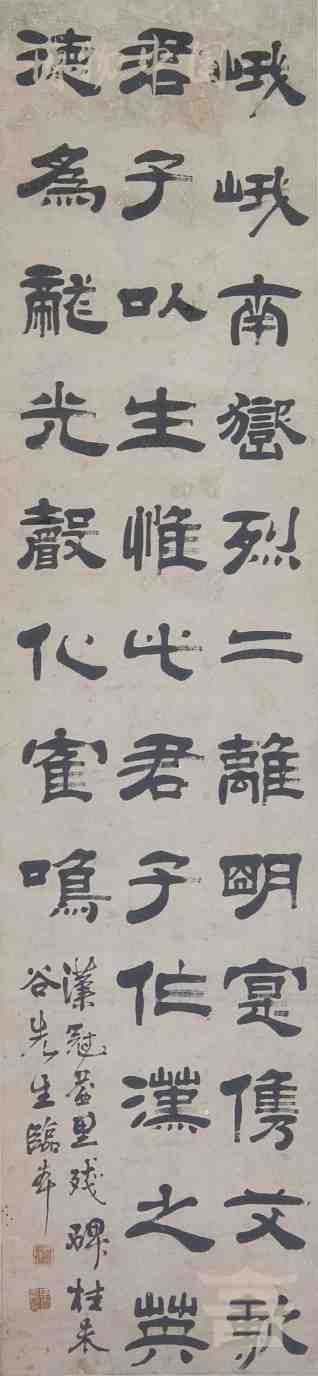 峨峨南嶽烈二離明寔儁艾
君子以生惟此君子作漢之英
德為龍光聲化寉鳴
漢冠蓋里殘碑桂未
谷先生臨本